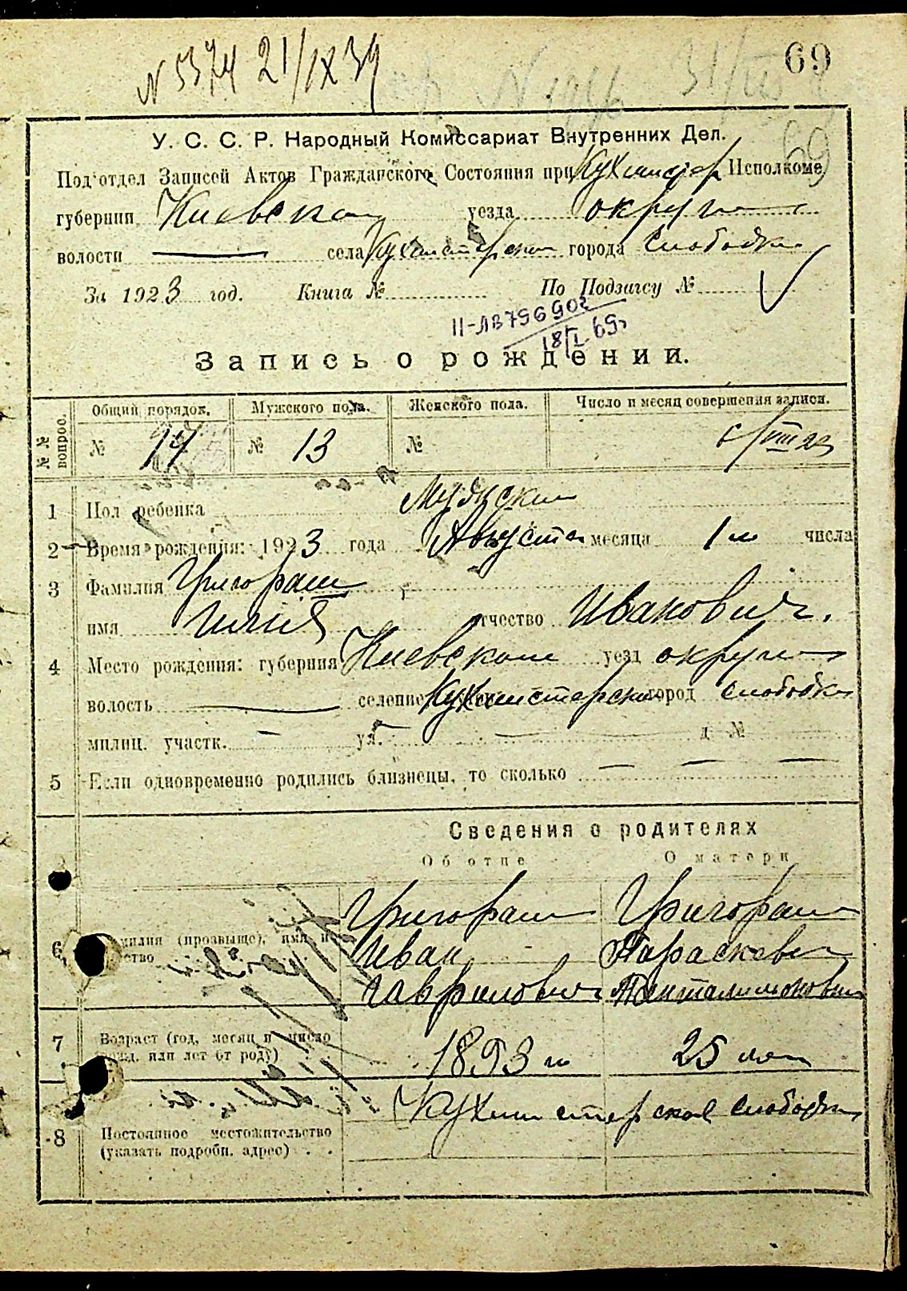 N 5374 21/IX 39
69
N 1946 31/III
69
У. С. С. Р. Народный Комиссариат Внутренних Дел.
Под'отдел Записей Актов Гражданского Состояния при Кухмистер Исполкоме
губернии Киевской уезда округи
волости — села Кухмистерской города слободки
За 1923 год. Книга № По Подзагсу №
II-ЛВ 796902
18/I 69
Запись о рождении.
№№ вопрос. Общий порядок. Мужского пола. Женского пола. Число и месяц совершения записи.
№ 17 № 13 № VIII 23
1 Пол ребенка Мужской
2 Время рождения: 1923 года Августа месяца 1 го числа
3 Фамилия Григораш
имя Илия отчество Иванович.
4 Место рождения: губерния Киевской уезд округи
волость — селение Кухмистерской город слободки
милиц. участк. — ул. — д №
5 Если одновременно родились близнецы, то сколько — — —
Сведения о родителях
Об отце О матери
6 Фамилия (прозвыще), имя и отчество
Григораш Григораш
Иван Параскева
Гаврилович Панталимоновна
7 Возраст (год, месяц и число рожд. или лет от роду) 1893 го 25 лет
8 Постоянное местожительство (указать подробн. адрес) . . Кухмистерская слободка